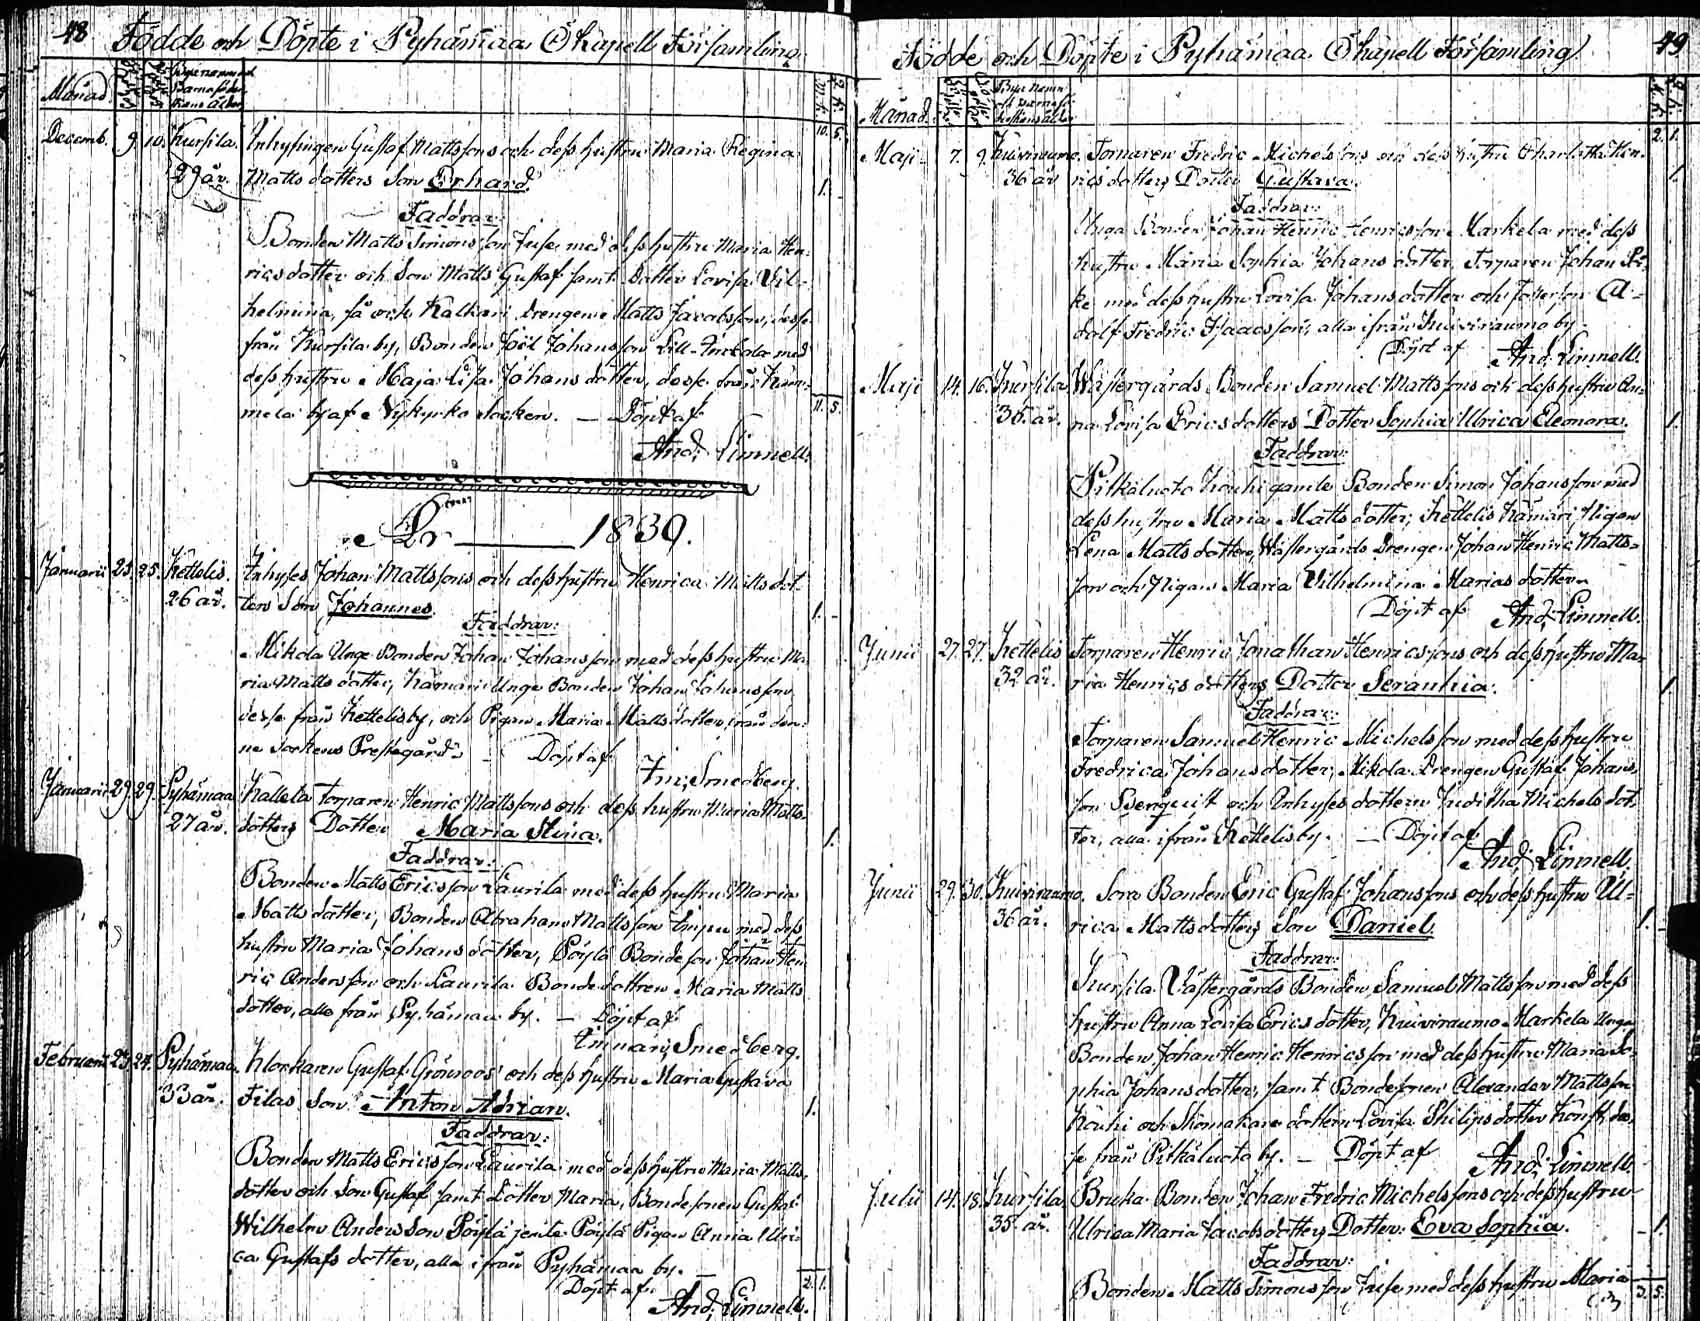 48 Födde och Döpte i Pyhämaa Capell Församling
Månad
Decemb. 9. 10. Kursila. Inhysingen Gustaf Mattssons och dess hustru Maria Regina
29 år. Matts dotters Son Erhard. 1.
Faddrar:
Bonden Matts Simonsson Juse med dess hustru Maria Hen-
rics dotter och Son Matts Gustaf samt Dotter Lovisa Vil-
helmina, så ock Kalkari drengen Matts Jacobsson, desse
från Kursila by, Bonden Joël Johansson Lill- med
dess hustru Maja Lisa Johans dotter, desse från Kam-
mela by af Nykyrko Socken. — Döpt af 11. 5.
And. Linnell.
1839.
Januarii 23. 25. Kettelis. Inhyses Johan Mattssons och dess hustru Henrica Matts dot-
26 år. ters Son Johannes. 1.
Faddrar:
Mikola Unge Bonden Johan Johansson med dess hustru Ma-
ria Matts dotter, Kamari Unge Bonden Johan Johansson,
desse från Kettelis by, och Pigan Maria Matts dotter, från den-
ne Sockens Prestegård. Döpt af
Im: Smedberg.
Januarii 29. 29. Pyhämaa Kallela Torparen Henric Mattssons och dess hustru Maria Matts
27 år. dotters Dotter Maria Stina. 1.
Faddrar:
Bonden Matts Ericsson Laurila med dess hustru Maria
Matts dotter, Bonden Abraham Mattsson Impu med dess
hustru Maria Johans dotter, Pöylä Bondeson Johan Hen-
ric Andersson och Laurila Bonde dottren Maria Matts
dotter, alla från Pyhämaa by. — Döpt af
Imman. Smedberg.
Februarii 23. 24. Pyhämaa. Klockaren Gustaf Grönroos' och dess hustru Maria Gustava
33 år. Filas Son Anton Adrian. 1.
Faddrar:
Bonden Matts Ericsson Laurila med dess hustru Maria Matts
dotter och Son Gustaf samt Dotter Maria, Bondesonen Gustaf
Wilhelm Andersson Pöylä jemte Pöylä Pigan Anna Ulri-
ca Gustafs dotter, alla ifrån Pyhämaa by. —
Döpt af 2. 1.
And. Linnell.
Födde och Döpte i Pyhämaa Capell Församling 49
Månad 2. 1.
Maji 7. 9. Kuiviraumo. Torparen Fredric Michelssons och dess hustru Charlotta Hen-
36 år rics dotters Dotter Gustava. 1.
Faddrar:
Unga Bonden Johan Henric Henricsson Markela med dess
hustru Maria Sophia Johans dotter, Torparen Johan
med dess hustru Lovisa Johansdotter och A-
dolf Fredric Isaacsson, alla ifrån Kuiviraumo by.
Döpt af And. Linnell.
Maji 14. 16. Kursila Wästergårds Bonden Samuel Mattssons och dess hustru An-
35 år. na Lovisa Erics dotters Dotter Sophia Ulrica Eleonora. 1.
Faddrar:
Pitkäluoto Kouhi gamle Bonden Simon Johansson med
dess hustru Maria Matts dotter, Kettelis Kamari Pigan
Lena Matts dotter, Wästergårds Drengen Johan Henric Matts-
son och Pigan Maria Vilhelmina Marias dotter
Döpt af And. Linnell.
Junii 27. 27. Kettelis Torparen Henric Jonathan Henricssons och dess hustru Ma-
32 år. ria Henrics dotters Dotter Seranhia. 1.
Faddrar:
Torparen Samuel Henric Michelsson med dess hustru
Fredrica Johans dotter, Mikola Drengen Gustaf Johans-
son Bergquist och Inhyses dottern Juditha Michels dot-
ter, alla ifrån Kettelis by. — Döpt af
And. Linnell.
Junii 29. 30. Kuiviraumo. Sora Bonden Eric Gustaf Johanssons och dess hustru Ul-
36 år. rica Matts dotters Son Daniel. 1.
Faddrar:
Kursila Västergårds Bonden Samuel Mattsson med dess
hustru Anna Lovisa Erics dotter, Kuiviraumo Markela Unge
Bonden Johan Henric Henricsson med dess hustru Maria So-
phia Johans dotter, samt Bondesonen Alexander Mattsson
Kouhi och Skomakare dottern Lovisa Philips dotter des-
se från Pitkäluoto by. — Döpt af And. Linnell.
Julii 14. 18. Kursila Bruka Bonden Johan Fredric Michelssons och dess hustru
35 år. Ulrica Maria Jacobs dotters Dotter Eva Sophia. 1.
Faddrar:
Bonden Matts Simonsson Juse med dess hustru Maria 3. 5.